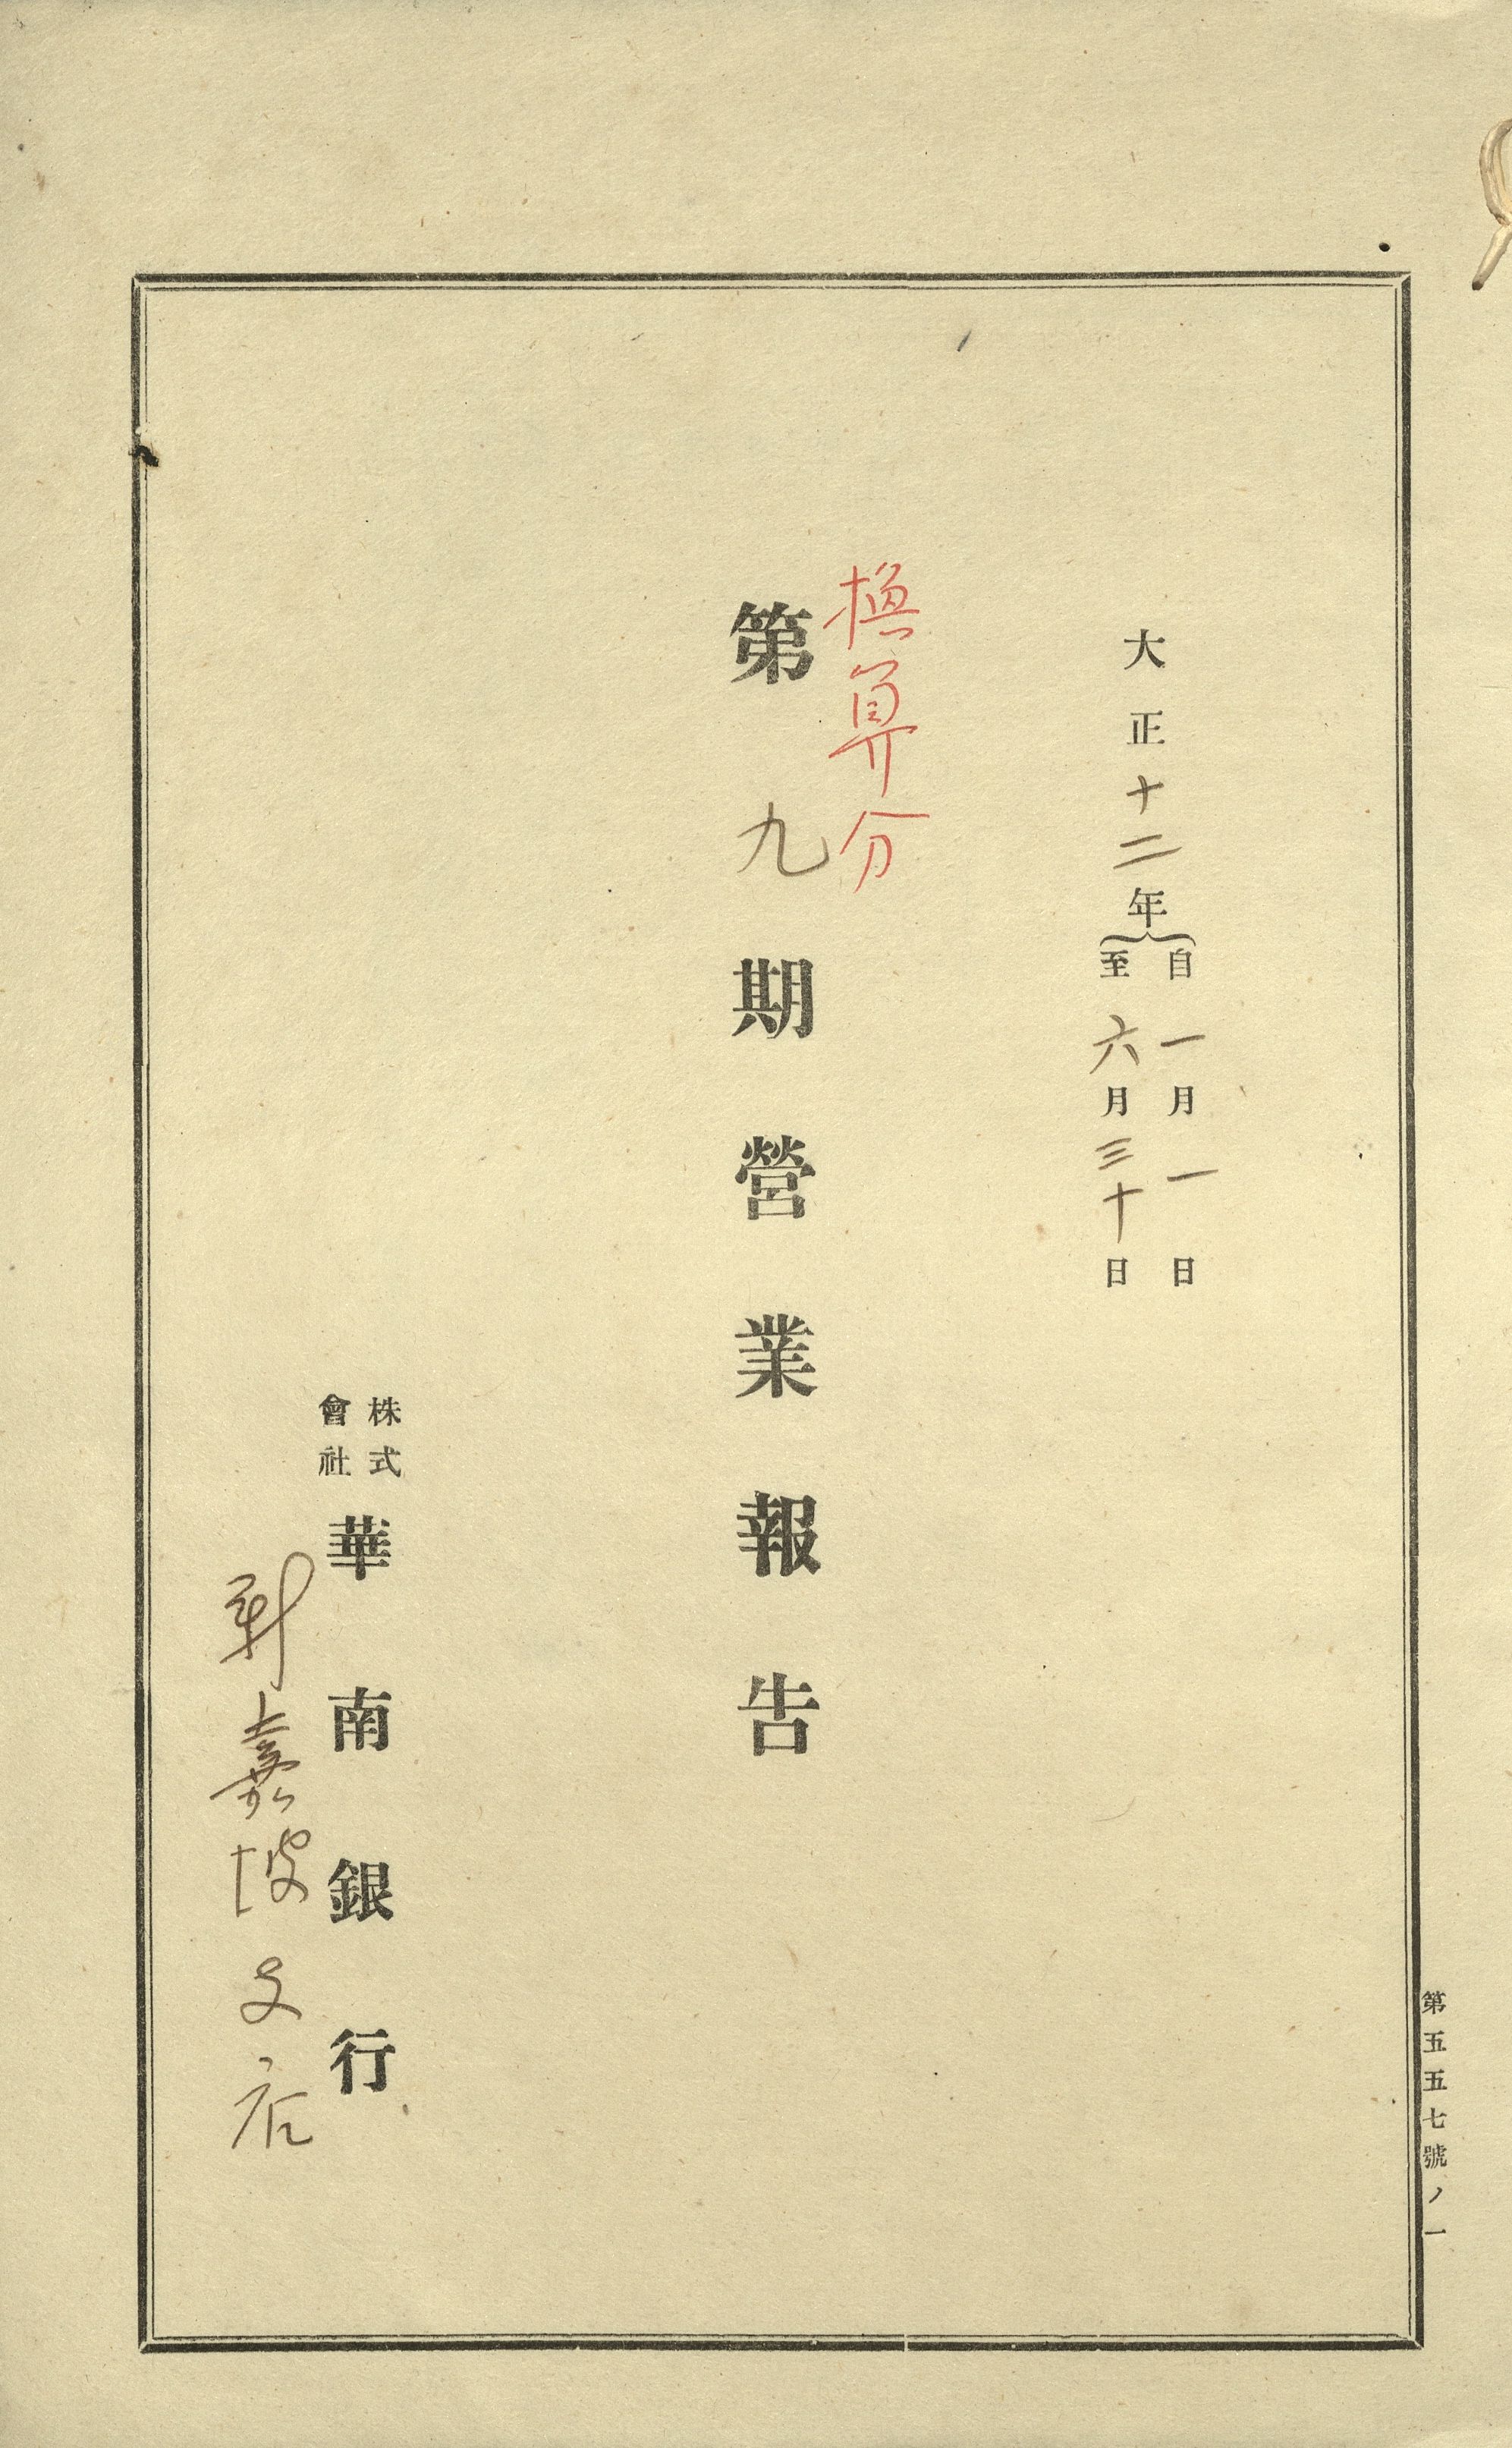 第五五七號ノ一
大正十二年
自一月一日
至六月三十日
換算分
第九期營業報告
株式
會社
華南銀行
新嘉坡支店